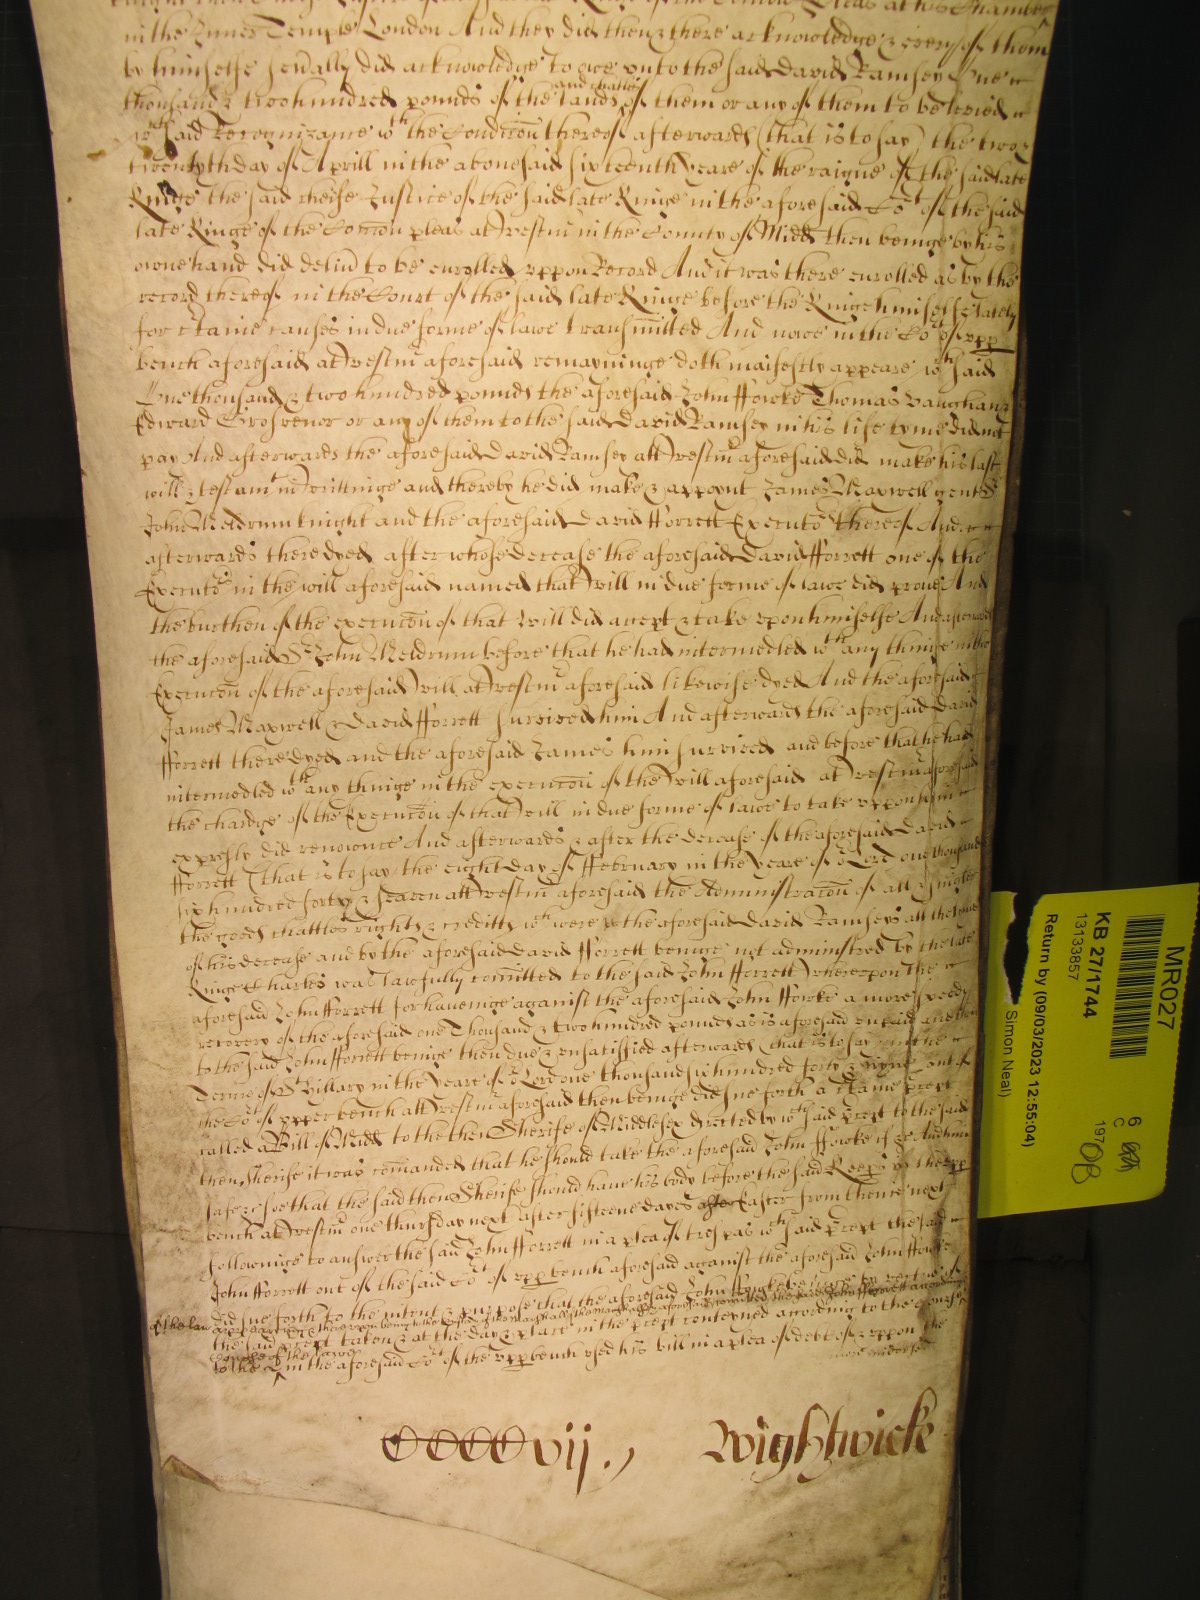 in the Inner Temple London And they did then & there acknowledge & every of them
by himselfe sev'ally did acknowledge to owe unto the said David Ramsey One
and chattles
thousand & twoo hundred pounds of the lands of them or any of them to be levied
wch said Recognizance wth the Condicon thereof afterwards (that is to say) the twoo &
twentyth day of Aprill in the abovesaid sixteenth yeare of the raigne of the said late
Kinge the said cheife Justice of the said late Kinge in the aforesaid Cot of the said
late Kinge of the Comon pleas at Westm in the County of Midd then beinge by his
owne hand did deliv' to be enrolled uppon Record And it was there enrolled as by the
record thereof in the Court of the said late Kinge before the Kinge himselfe lately
for c'taine causes in due forme of lawe transmitted And nowe in the Cot of upp
bench aforesaid at Westm aforesaid remayninge doth maifestly appeare wch said
One thousand & twoo hundred pounds the aforesaid John ffowke Thomas Vaughan &
Edward Grosvenor or any of them to the said David Ramsey in his life tyme did not
pay And afterwards the aforesaid David Ramsey att Westm aforesaid did make his last
will & testamt in Writtinge and thereby he did make & appoynt James Maxwell gent Sr
John Meldrum knight and the aforesaid David fforrett Executors thereof And
afterwards there dyed after whose decease the aforesaid David fforrett one of the
Executrs in the will aforesaid named that Will in due forme of lawe did prove And
the burthen of the execucon of that Will did accept & take upon himselfe And afterwards
the aforesaid Sr John Meldrum before that he had intermedled wth any thinge in the
Execucon of the aforesaid Will at Westm aforesaid likewise dyed And the aforesaid
James Maxwell & David fforrett survived him And afterwards the aforesaid David
fforrett there dyed and the aforesaid James him survived and before that he had
intermedled wth any thinge in the execucon of the Will aforesaid at Westm aforesaid
the chardge of the Execucon of that Will in due forme of lawe to take uppon him
expresly did renounce And afterwards & after the decease of the aforesaid David
fforrett (that is to say) the eight day of ffebruary in the yeare of or Lord one thousand
six hundred forty & seaven att Westm aforesaid the Administracon of all & singler
the goods chattles rights & creditts wch were the aforesaid David Ramseys att the tyme
of his decease and by the aforesaid David fforrett beinge not administred by the late
Kinge Charles was lawfully comitted to the said John fforrett whereupon the
aforesaid John fforrett for haveinge against the aforesaid John ffowke a more speedy
recovery of the aforesaid one Thousand & twoo hundred pounds as is aforesaid unpaid and then
to the said John fforrett beinge then due & unsatisfied afterwards (that is to say) in the
Terme of St Hillary in the yeare of or Lord one thousand six hundred forty & nyne out of
the Cot of upper bench att Westm aforesaid then beinge did sue forth a c'taine p'cept
called a Bill of Midd to the then Sherife of Middlesex directed by wch said p'cept to the said
then Sherife it was comanded that he should take the aforesaid John ffowke if &c And him
safe &c soe that the said then Sherife should have his body before the said Keeps of the upp
bench at Westm one thursday next after fifteene dayes after Easter from thence next
followinge to answer the said John fforrett in a plea of trespas wch said p'cept the said
John fforrett out of the said Cot of upp bench aforesaid against the aforesaid John ffowke
did sue forth to the intent & purpose that the aforesaid John ffowke beinge by vertue of
the said p'cept taken & at the day & place in the p'cept conteyned according to the course
of the law
in the aforesaid Cot of the upp bench used his bill in a plea of debt of & uppon the
CCCCvij.
Wightwicke
MR027
KB 27/1744
13133857
Return by (09/03/2023 12:55:04)
Simon Neal)
6
C
1970